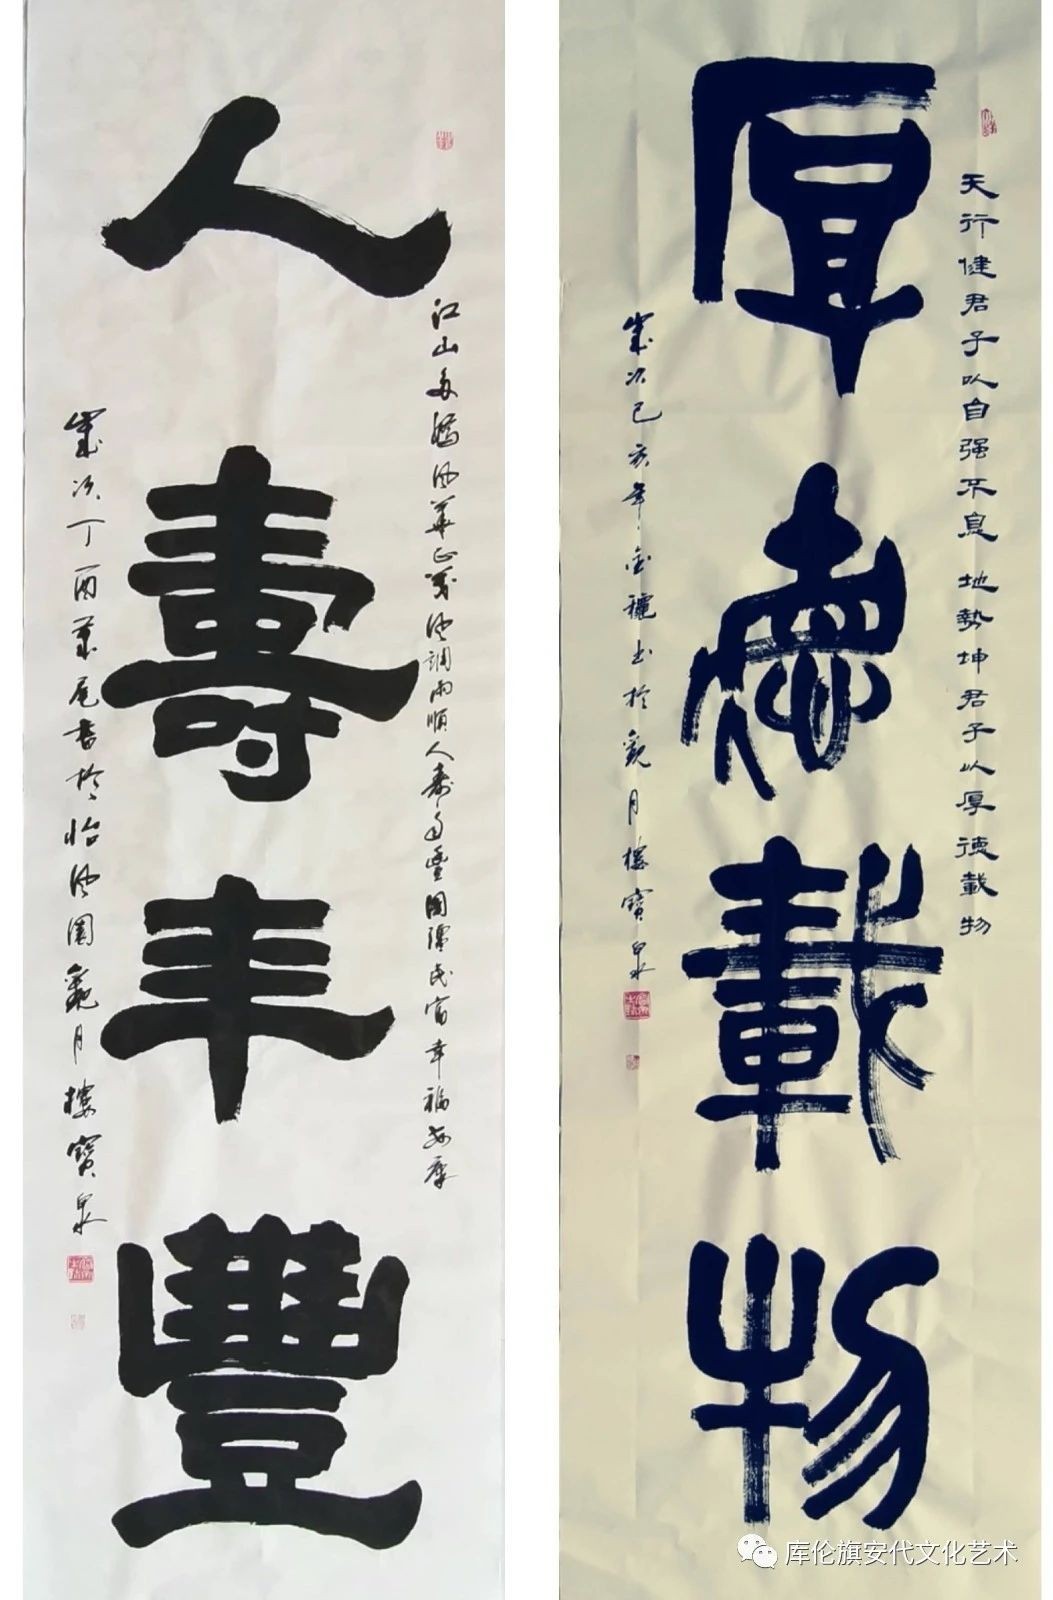 人壽年豐
江山多嬌風華正茂風調雨順人壽年豐國強民富幸福安康
歲次丁酉歲尾書於怡風園觀月樓寶泉
天行健君子以自强不息地勢坤君子以厚德載物
厚德載物
歲次己亥年金穐書於觀月樓寶泉
库伦旗安代文化艺术